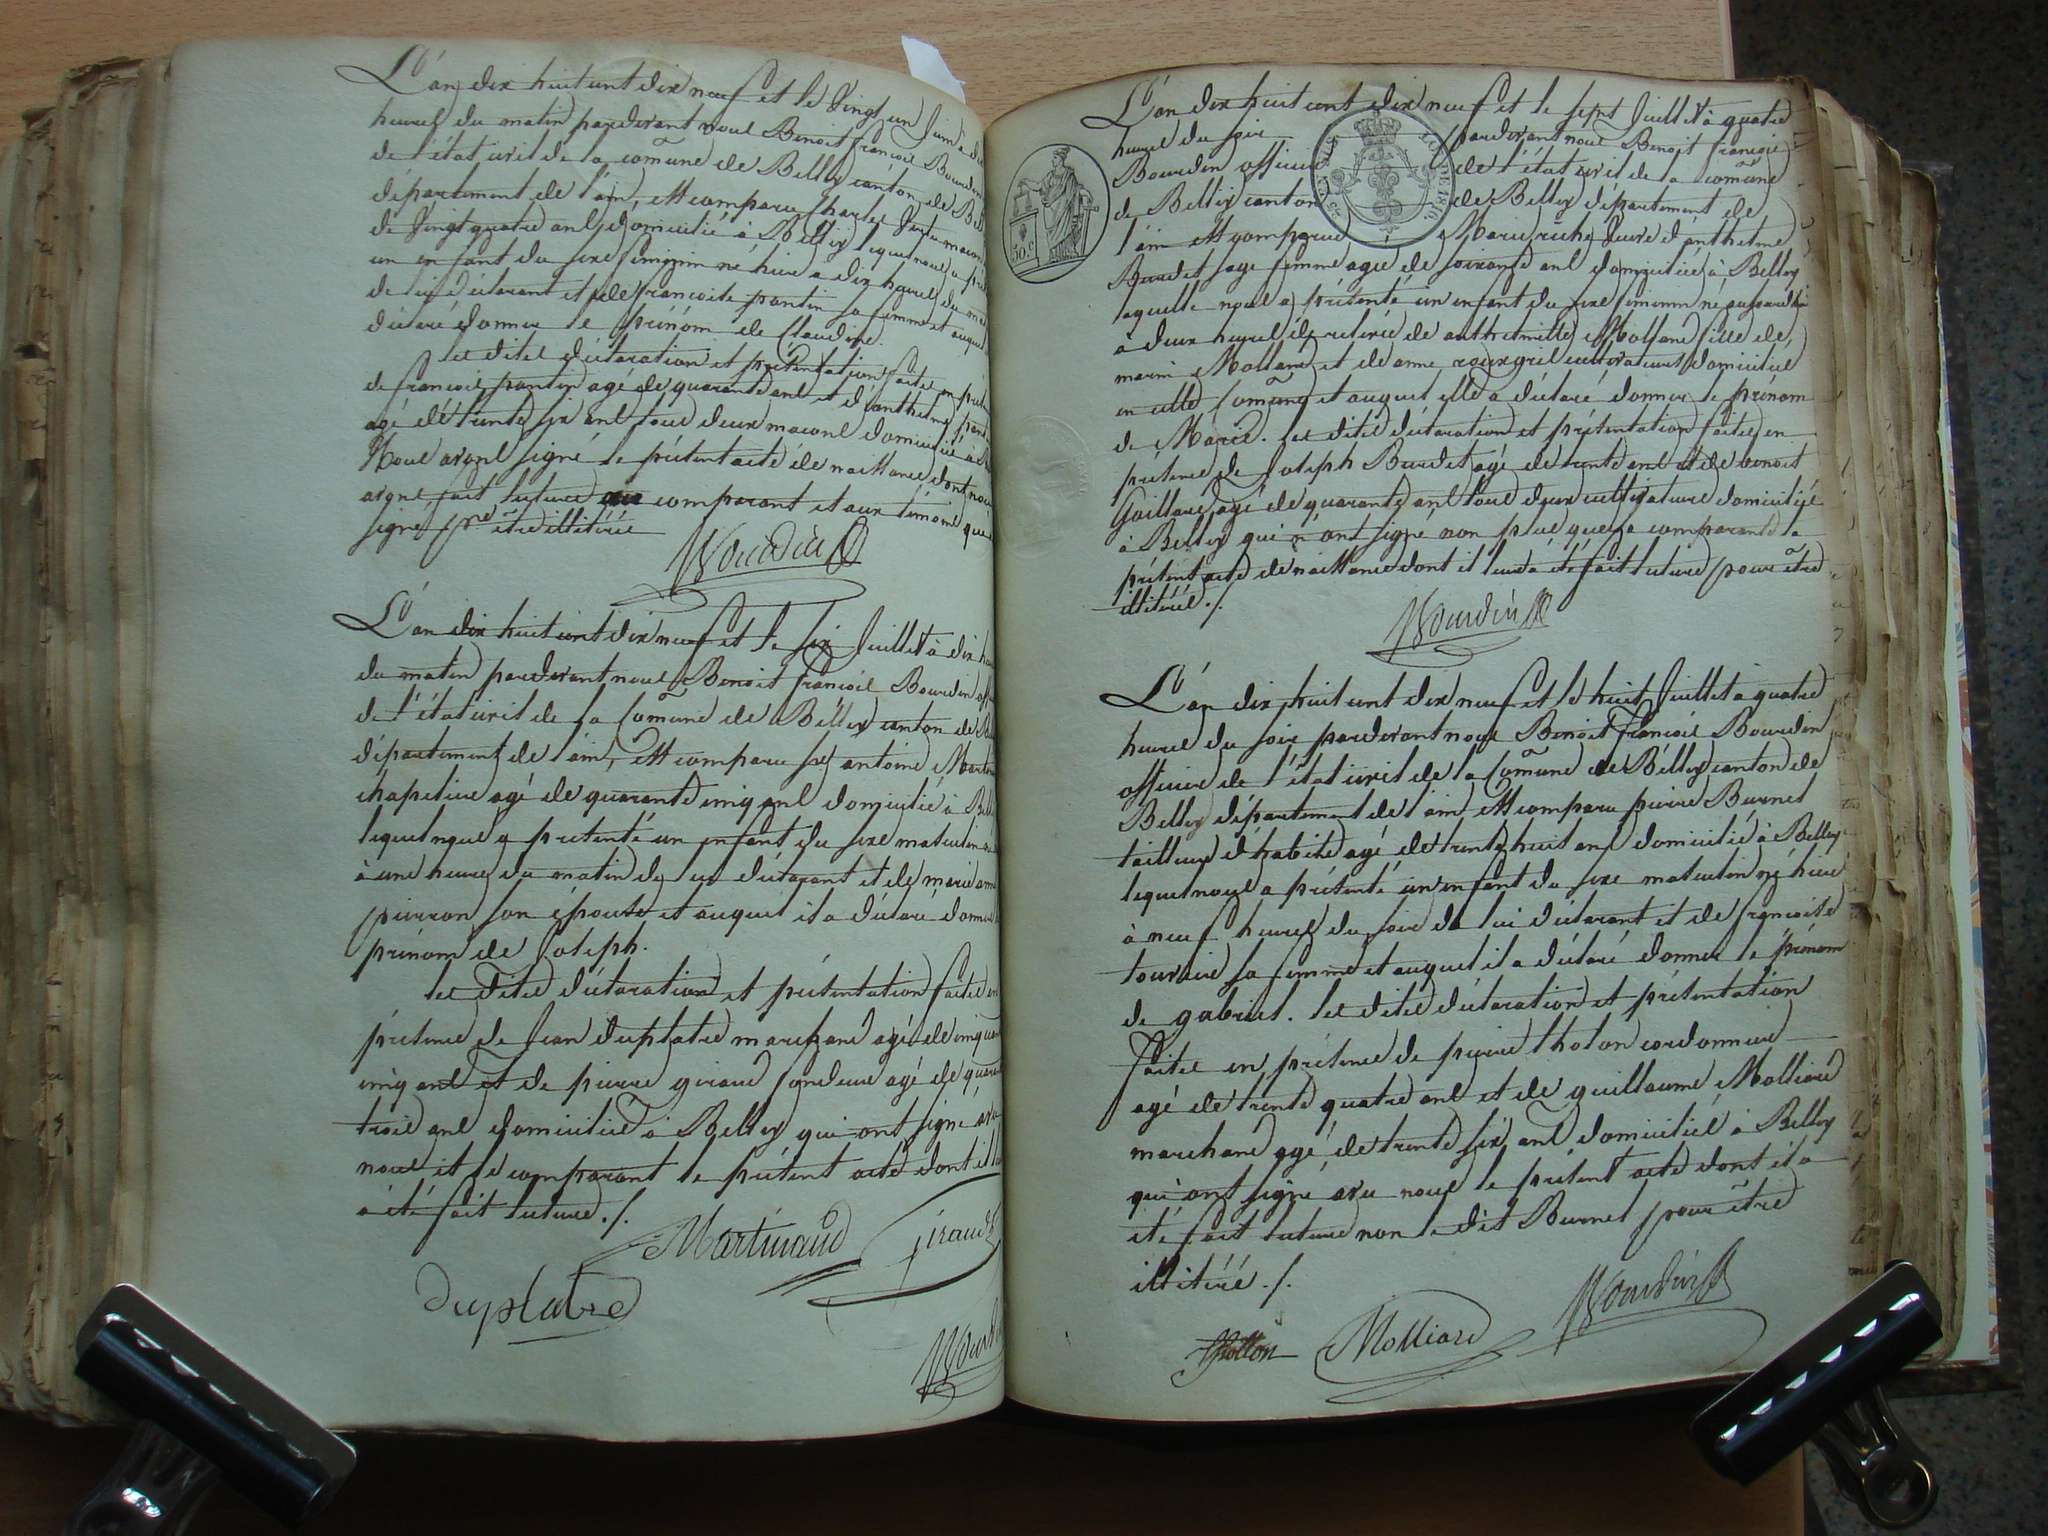 L'an dix huit cent dix neuf et le Vingt un Juin à
heures du matin pardevant nous Benoit françois Bourdin
de l'état civil de la comune de Belley canton de
département de l'ain, est comparu Charles
de Vingt quatre ans domicilié à Belley lequel nous a
un enfant du sexe feminin né hier a dix heures du
de lui déclarant et de francoise pantin sa femme et auquel
déclaré donner le prénom de Claudine.
les dites déclaration et présentation faites en
de francois pantin agé de quarante ans et d'anthelme
agé de trente six ans tous deux macons domiciliés à
Nous avons signé le présent acte de naissance dont nous
avons fait lecture au comparant et aux témoins
signé pr être illitérés
Bourdin
L'an dix huit cent dix neuf et le six Juillet à dix
du matin pardevant nous Benoit françois Bourdin
de l'état civil de la Comune de Belley canton de
département de l'ain, est comparu sr antoine
chapelier agé de quarante cinq ans domicilié à
lequel nous a présenté un enfant du sexe masculin
à une heure du matin de lui déclarant et de marie
pierron son épouse et auquel il a déclaré donner
prénom de Joseph.
les dites déclaration et présentation faites en
présence de Jean duplatre marchand agé de
cinq ans et de pierre giraud fondeur agé de
trois ans domiciliés à Belley qui ont signé
nous et le comparant le présent acte dont il
a été fait lecture ./.
Martinand giraud
Duplatre
L'an dix huit cent dix neuf et le sept Juillet à quatre
heures du soir pardevant nous Benoit françois
Bourdin officier de l'état civil de la comune
de Belley canton de Belley département de
l'ain est comparue Marie riche Veuve d'anthelme
Burdet sage femme agée de soixante ans domiciliée à Belley
laquelle nous a présenté un enfant du sexe feminin né
à deux heures de relevée de anthelmette Molland fille de
marin Molland et de anne cultivateurs domiciliés
en cette Comune et auquel elle a déclaré donner le prénom
de Marie. les dites déclaration et présentation faites en
présence de Joseph Burdet agé de trente ans et de benoit
Gaillard agé de quarante ans tous deux cultivateurs domiciliés
à Belley qui n'ont signé non plus que la comparante le
présent acte de naissance dont il leur a été fait lecture pour être
illitérés ./.
Bourdin
50 c
L'an dix huit cent dix neuf et le huit Juillet à quatre
heures du soir pardevant nous Benoit françois Bourdin
officier de l'état civil de la Comune de Belley canton de
Belley département de l'ain, est comparu pierre Burnet
tailleur d'habits agé de trente huit ans domicilié à Belley
lequel nous a présenté un enfant du sexe masculin né hier
à neuf heures du soir de lui déclarant et de francoise
sa femme et auquel il a déclaré donner le prénom
de gabriel. les dites déclaration et présentation
faites en présence de pierre thoton cordonnier
agé de trente quatre ans et de guillaume Molliard
marchand agé de trente six ans domiciliés à Belley
qui ont signé avec nous le présent acte dont il a
été fait lecture non le dit Burnet pour être
illitéré ./.
Thotton Molliard Bourdin